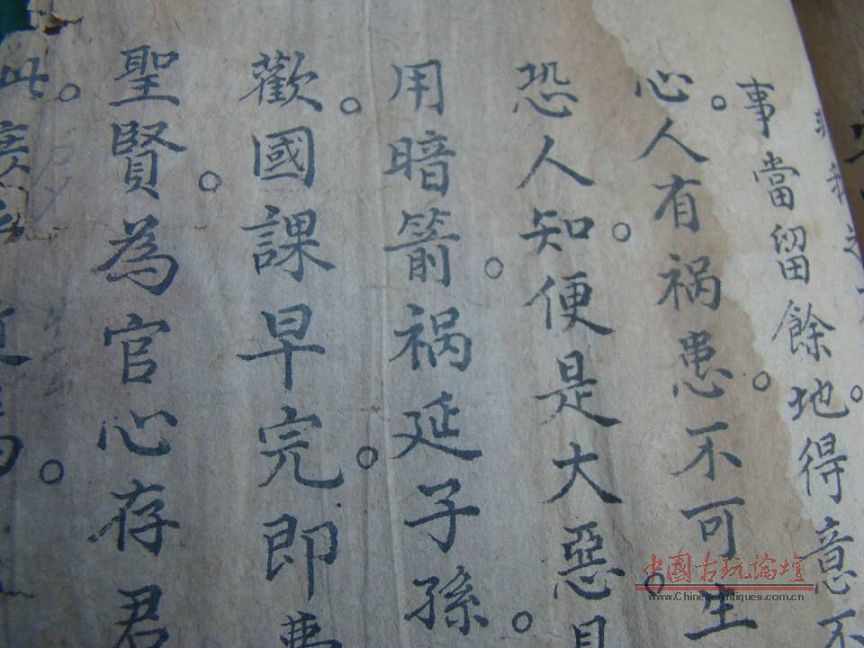 事當留餘地。得意不
心。人有祸患。不可生
恐人知。便是大惡。見
用暗箭。祸延子孫。
歡。國課早完。即
聖賢。為官心存君
此。
中國古玩論壇
www.ChineseAntiques.com.cn